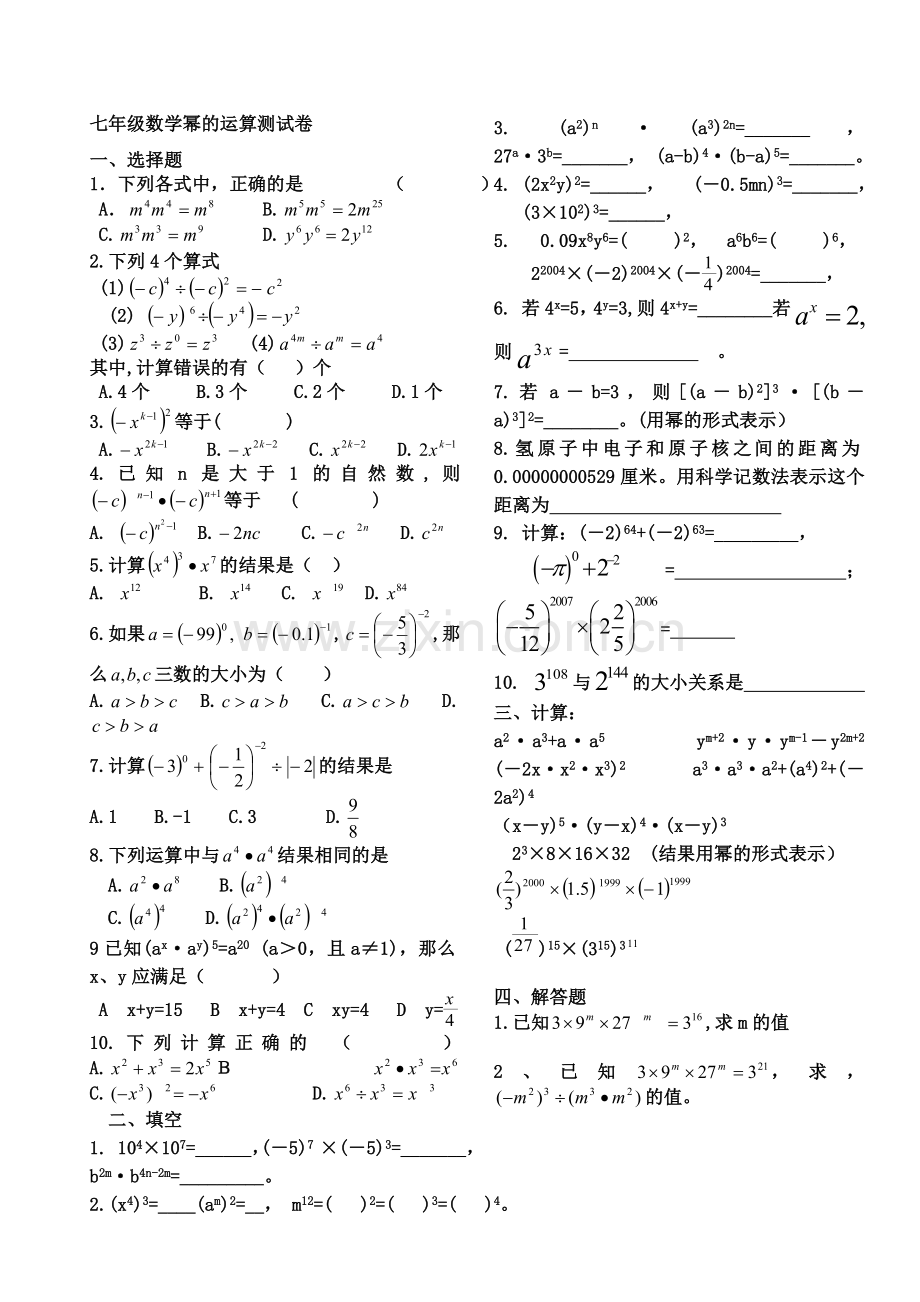 七年级数学幂的运算测试卷
一、选择题
1．下列各式中，正确的是 （ ）
A．m⁴m⁴=m⁸ B.m⁵m⁵=2m²⁵
C.m³m³=m⁹ D.y⁶y⁶=2y¹²
2.下列4个算式
(1)(−c)⁴÷(−c)²=−c²
(2) (−y)⁶÷(−y⁴)=−y²
(3)z³÷z⁰=z³ (4)a⁴ᵐ÷aᵐ=a⁴
其中,计算错误的有（ ）个
A.4个 B.3个 C.2个 D.1个
3.(−x^{k−1})²等于( )
A.−x^{2k−1} B.−x^{2k−2} C.x^{2k−2} D.2x^{k−1}
4.已知n是大于1的自然数,则
(−c)^{n−1}•(−c)^{n+1}等于 ( )
A. (−c)^{n²−1} B.−2nc C.−c^{2n} D.c^{2n}
5.计算(x⁴)³•x⁷的结果是（ ）
A. x¹² B. x¹⁴ C. x¹⁹ D.x⁸⁴
6.如果a=(−99)⁰, b=(−0.1)⁻¹,c=(−5/3)⁻²,那
么a,b,c三数的大小为（ ）
A.a>b>c B.c>a>b C.a>c>b D.
c>b>a
7.计算(−3)⁰+(−1/2)⁻²÷|−2|的结果是
A.1 B.-1 C.3 D.9/8
8.下列运算中与a⁴•a⁴结果相同的是
A.a²•a⁸ B.(a²)⁴
C.(a⁴)⁴ D.(a²)⁴•(a²)⁴
9已知(aˣ·aʸ)⁵=a²⁰ (a＞0，且a≠1)，那么
x、y应满足（ ）
A x+y=15 B x+y=4 C xy=4 D y=x/4
10.下列计算正确的（ ）
A.x²+x³=2x⁵ B x²•x³=x⁶
C.(−x³)²=−x⁶ D.x⁶÷x³=x³
二、填空
1. 10⁴×10⁷=______，(－5)⁷ ×(－5)³=_______，
b²ᵐ·b⁴ⁿ⁻²ᵐ=_________。
2.(x⁴)³=____(aᵐ)²=__， m¹²=( )²=( )³=( )⁴。
3. (a²)ⁿ · (a³)²ⁿ=_______ ，
27ᵃ·3ᵇ=_______， (a-b)⁴·(b-a)⁵=_______。
4. (2x²y)²=______， (－0.5mn)³=_______，
(3×10²)³=______，
5. 0.09x⁸y⁶=( )²， a⁶b⁶=( )⁶，
2²⁰⁰⁴×(－2)²⁰⁰⁴×(－1/4)²⁰⁰⁴=_______，
6. 若4ˣ=5，4ʸ=3,则4ˣ⁺ʸ=________若aˣ=2,
则a³ˣ=______________ 。
7. 若a－b=3，则[(a－b)²]³·[(b－
a)³]²=________。(用幂的形式表示)
8.氢原子中电子和原子核之间的距离为
0.00000000529厘米。用科学记数法表示这个
距离为______________________
9. 计算:(－2)⁶⁴+(－2)⁶³=_________，
(−π)⁰+2⁻² =__________________；
(−5/12)²⁰⁰⁷×(2 2/5)²⁰⁰⁶=_______
10. 3¹⁰⁸与2¹⁴⁴的大小关系是_____________
三、计算:
a²·a³+a·a⁵ yᵐ⁺²·y·yᵐ⁻¹－y²ᵐ⁺²
(－2x·x²·x³)² a³·a³·a²+(a⁴)²+(－
2a²)⁴
（x－y)⁵·(y－x)⁴·(x－y)³
2³×8×16×32 (结果用幂的形式表示)
(2/3)²⁰⁰⁰×(1.5)¹⁹⁹⁹×(−1)¹⁹⁹⁹
(1/27)¹⁵×(3¹⁵)³¹¹
四、解答题
1.已知3×9ᵐ×27ᵐ=3¹⁶,求m的值
2、已知3×9ᵐ×27ᵐ=3²¹，求，
(−m²)³÷(m³•m²)的值。
www.zixin.com.cn